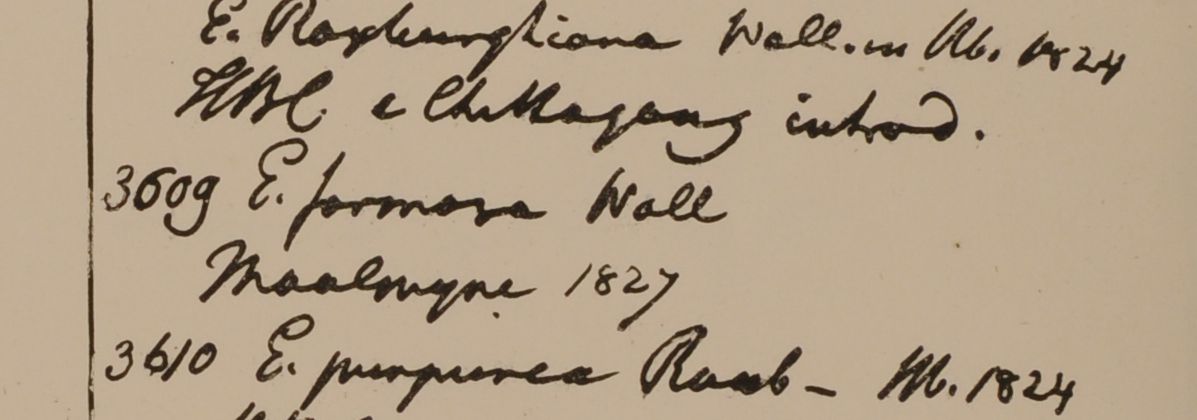 E. Roxburghiana Wall. in Hb. 1824
HBC e Chittagong introd.
3609 E. formosa Wall
Maalmyne 1827
3610 E. purpurea Roxb - Hb. 1824